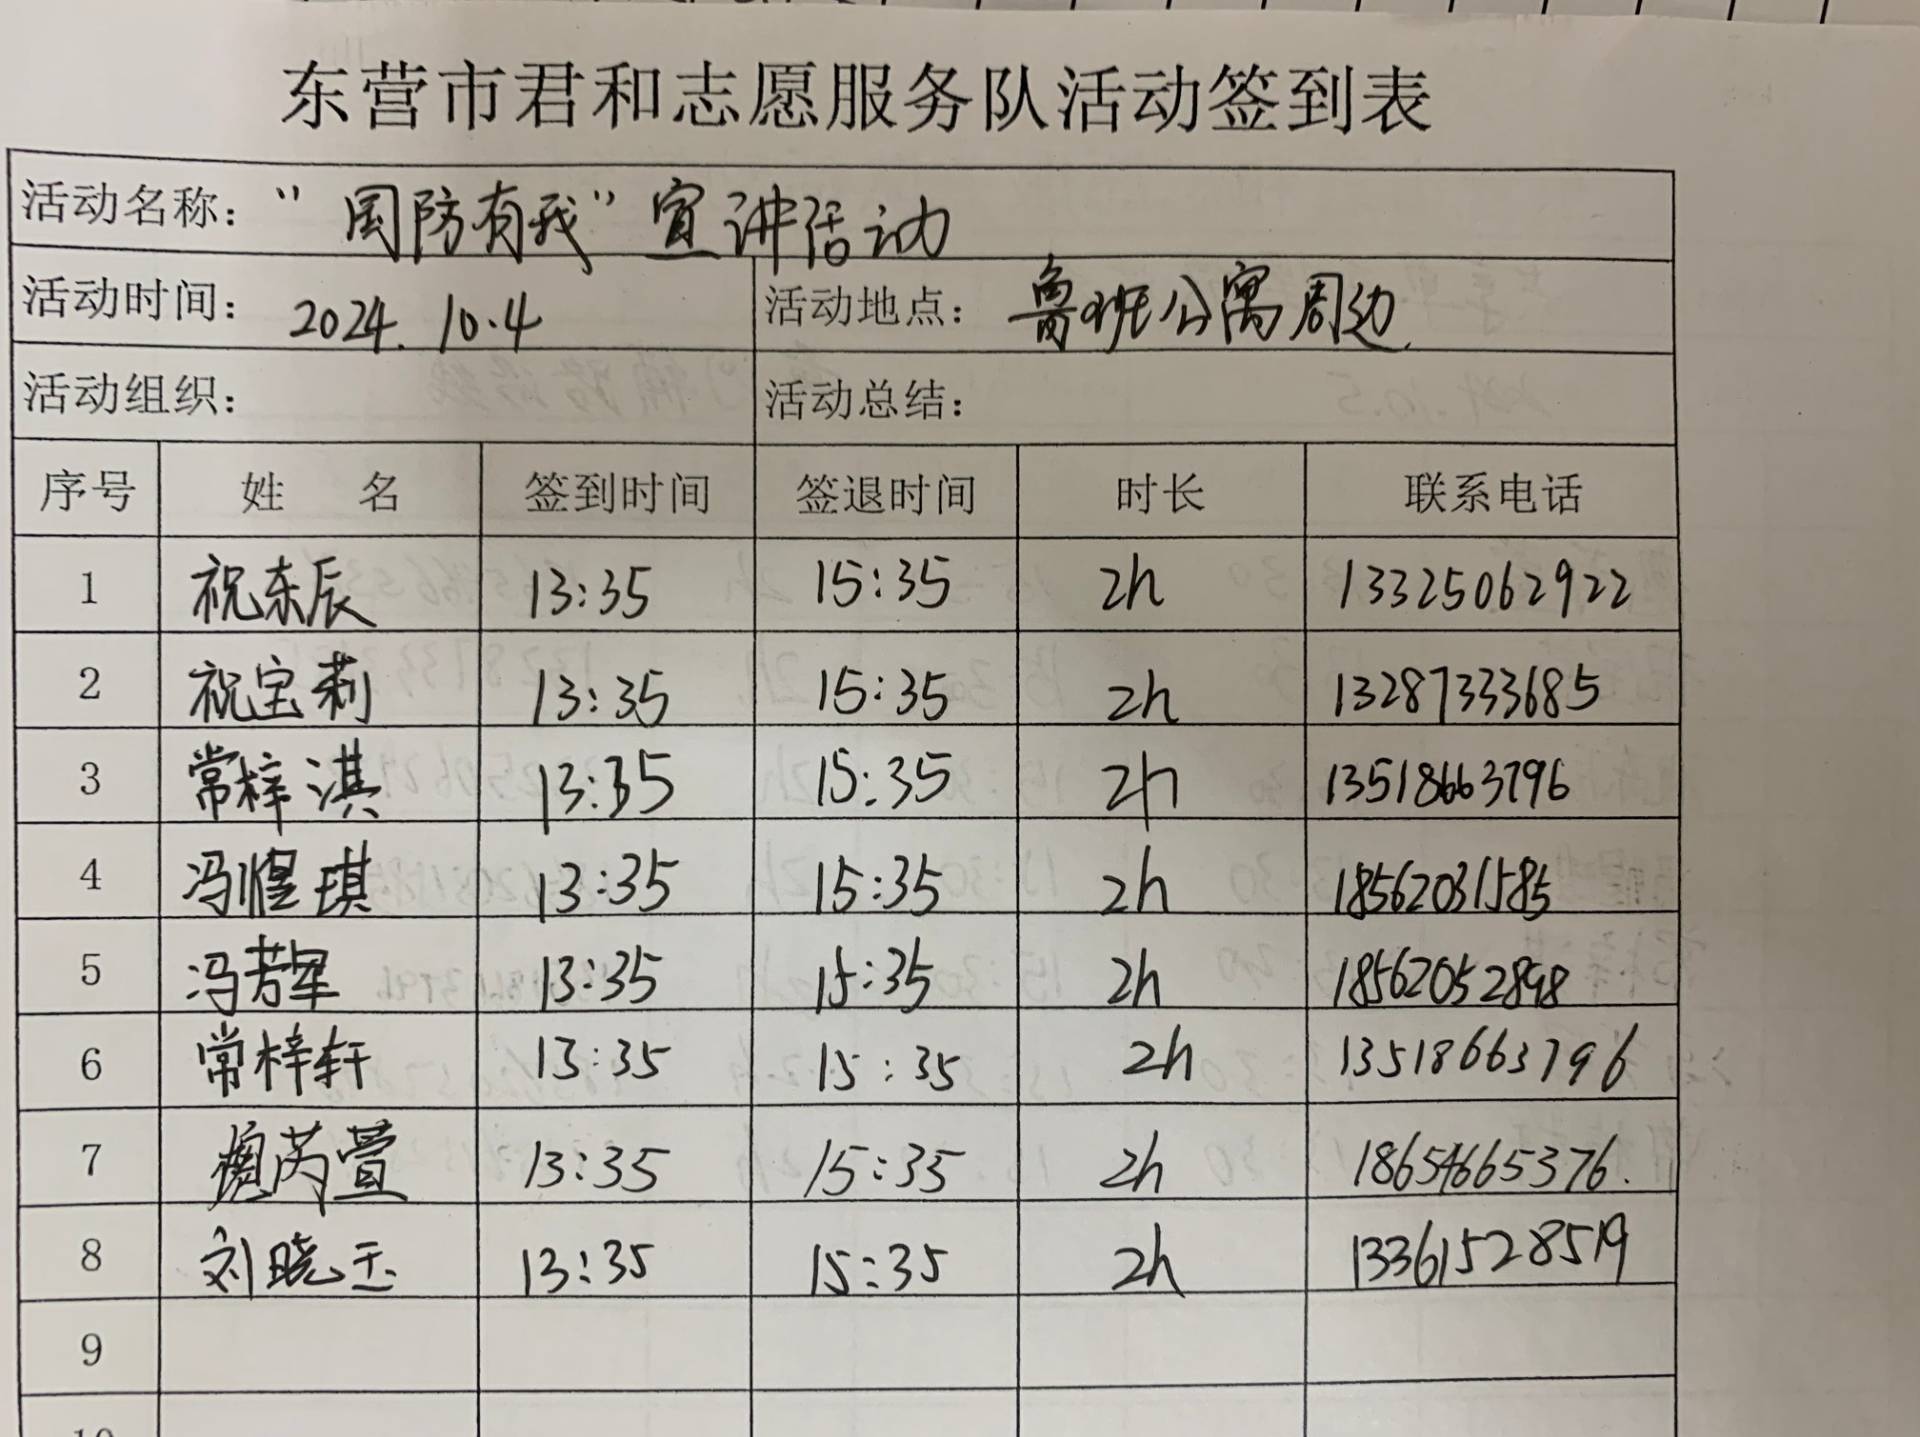 东营市君和志愿服务队活动签到表
活动名称：“国防有我”宣讲活动
活动时间：2024.10.4 活动地点：鲁班公寓周边
活动组织： 活动总结：
序号 姓 名 签到时间 签退时间 时长 联系电话
1 祝东辰 13:35 15:35 2h 13325062922
2 祝宝莉 13:35 15:35 2h 13287333685
3 常梓淇 13:35 15:35 2h 13518663796
4 冯煜琪 13:35 15:35 2h 18562031585
5 冯芳军 13:35 15:35 2h 18562052898
6 常梓轩 13:35 15:35 2h 13518663796
7 芮萱 13:35 15:35 2h 18654665376.
8 刘晓玉 13:35 15:35 2h 13361528519
9
10